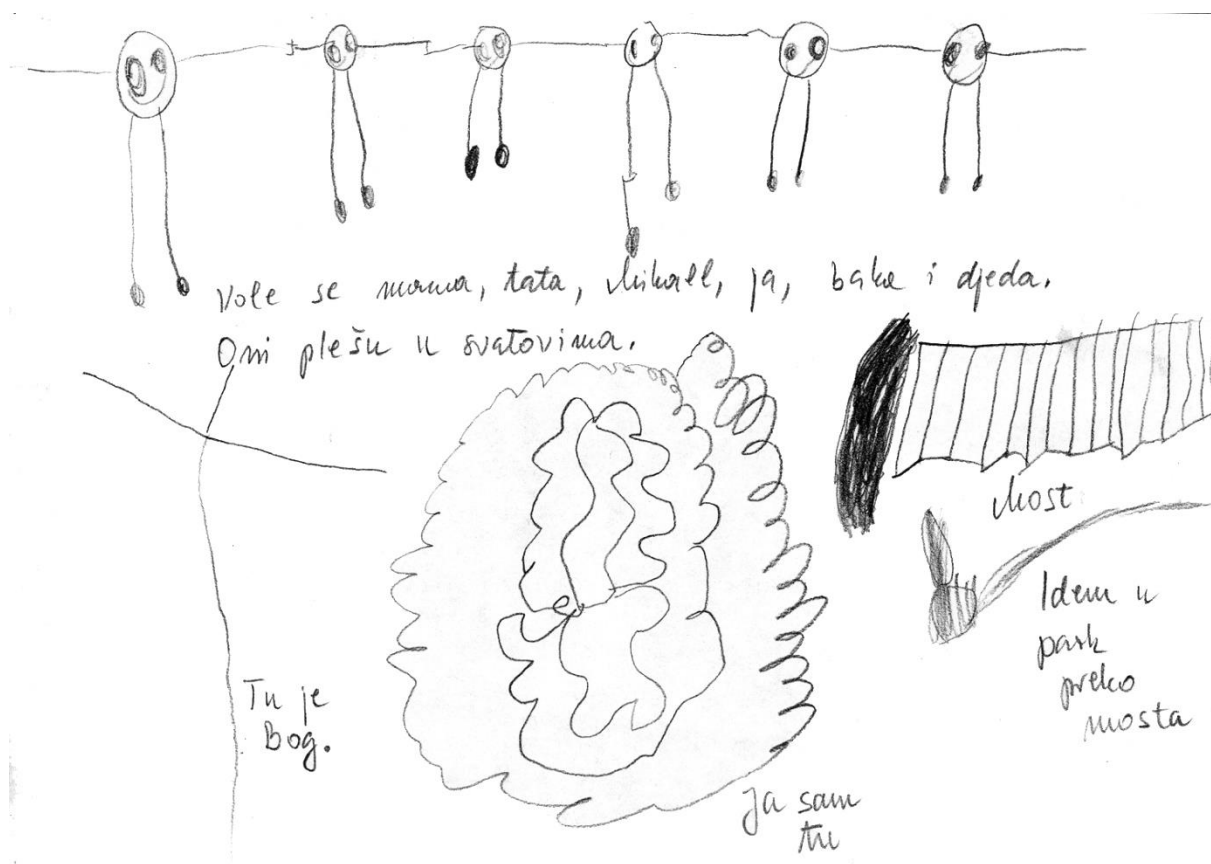 Vole se mama, tata, Mihael, ja, baka i djeda.
Oni plešu u svatovima.
Most
Idem u
park
preko
mosta
Tu je
Bog.
Ja sam
tu